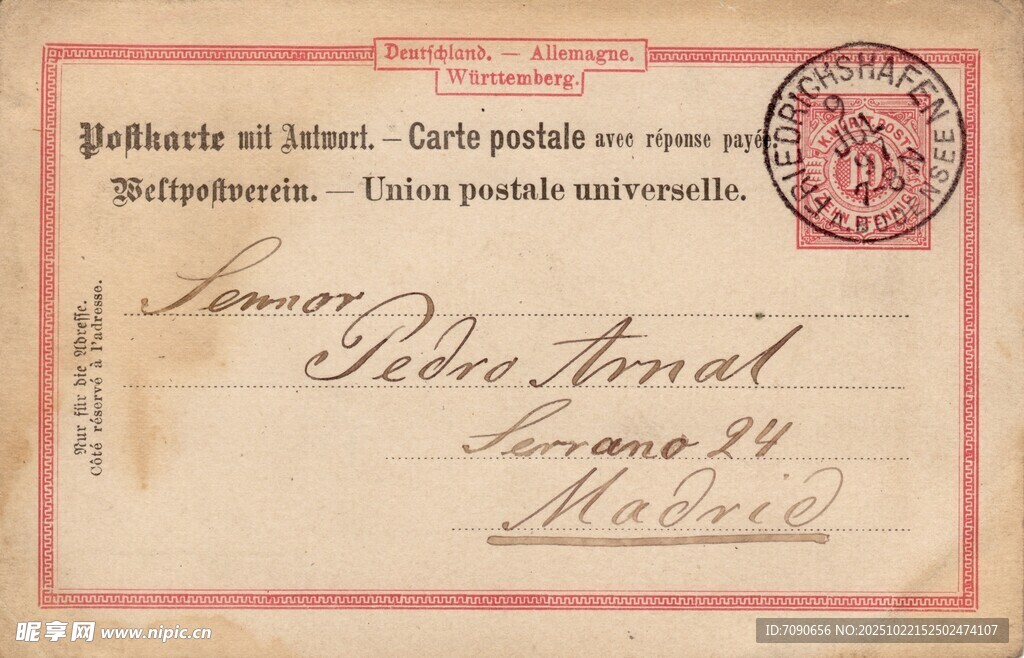 Deutschland. — Allemagne.
Württemberg.
Postkarte mit Antwort. — Carte postale avec réponse payée.
Weltpostverein. — Union postale universelle.
FRIEDRICHSHAFEN
9
91
7-8 N
A. BODENSEE
K. WÜRTT. POST
10
ZEHN PFENNIG
Nur für die Adresse.
Côté réservé à l'adresse.
Sennor
Pedro Arnal
Serrano 24
Madrid
昵享网 www.nipic.cn
ID:7090656 NO:20251022152502474107